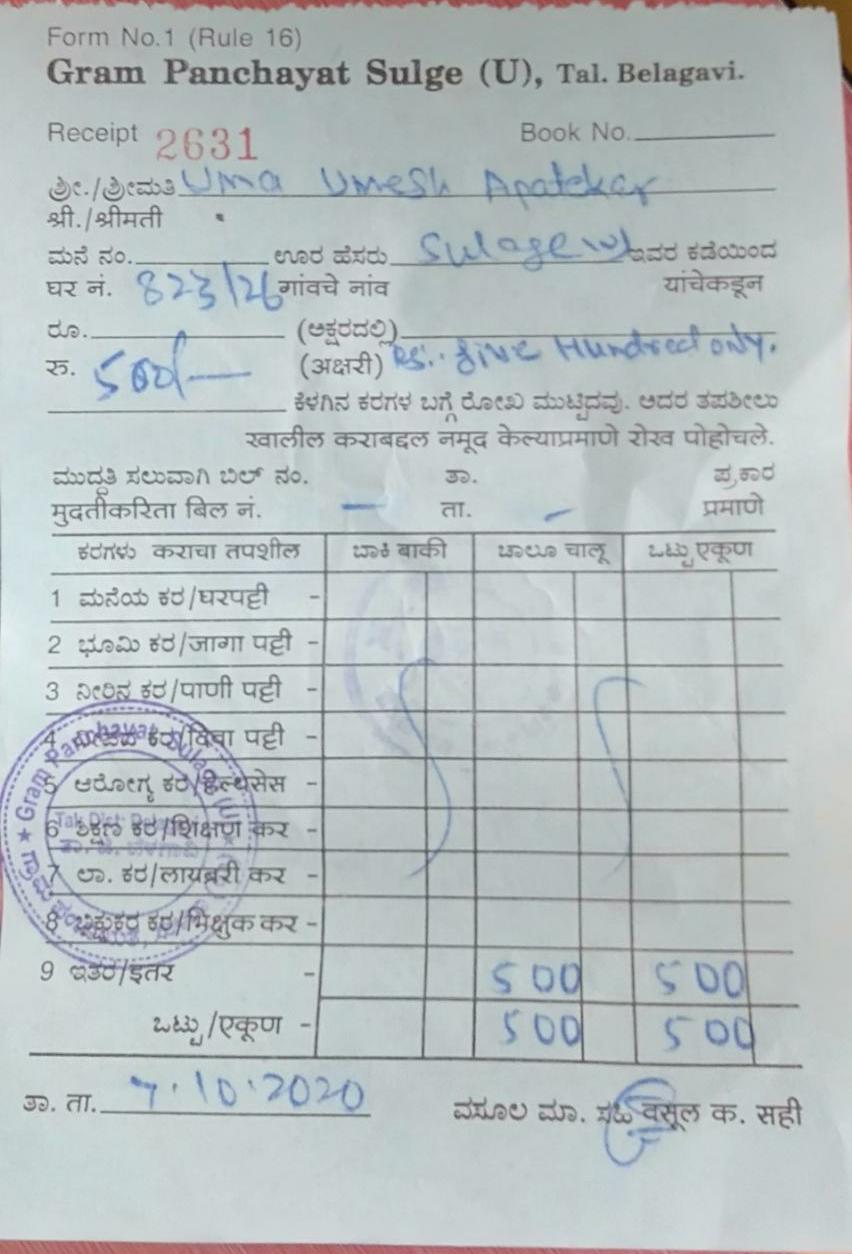 Form No.1 (Rule 16)
Gram Panchayat Sulge (U), Tal. Belagavi.
Receipt 2631 Book No.
ಶ್ರೀ./ಶ್ರೀಮತಿ Uma Umesh Apatekar
श्री./श्रीमती
ಮನೆ ನಂ. ಊರ ಹೆಸರು Sulage (U) ಇವರ ಕಡೆಯಿಂದ
घर नं. 823/26 गांवचे नांव यांचेकडून
ರೂ. (ಅಕ್ಷರದಲ್ಲಿ)
रु. 500/- (अक्षरी) Rs. five Hundred only.
ಕೆಳಗಿನ ಕರಗಳ ಬಗ್ಗೆ ರೋಖ ಮುಟ್ಟಿದವು. ಅದರ ತಪಶೀಲು
खालील कराबद्दल नमूद केल्याप्रमाणे रोख पोहोचले.
ಮುದ್ದತಿ ಸಲುವಾಗಿ ಬಿಲ್ ನಂ. ತಾ. ಪ್ರಕಾರ
मुदतीकरिता बिल नं. – ता. – प्रमाणे
ಕರಗಳು कराचा तपशील ಬಾಕಿ बाकी ಚಾಲೂ चालू ಒಟ್ಟು एकूण
1 ಮನೆಯ ಕರ/घरपट्टी -
2 ಭೂಮಿ ಕರ/जागा पट्टी -
3 ನೀರಿನ ಕರ/पाणी पट्टी -
4 ಕರ/दिवा पट्टी -
5 ಆರೋಗ್ಯ ಕರ/हेल्थसेस -
6 ಶಿಕ್ಷಣ ಕರ/शिक्षण कर -
7 ಲಾ. ಕರ/लायब्ररी कर -
8 ಕರ/भिक्षुक कर -
9 ಇತರ/इतर - 500 500
ಒಟ್ಟು/एकूण - 500 500
ತಾ. ता. 7.10.2020 ವಸೂಲ ಮಾ. ಸಹಿ वसूल क. सही
Gram Panchayat Sulage (U)